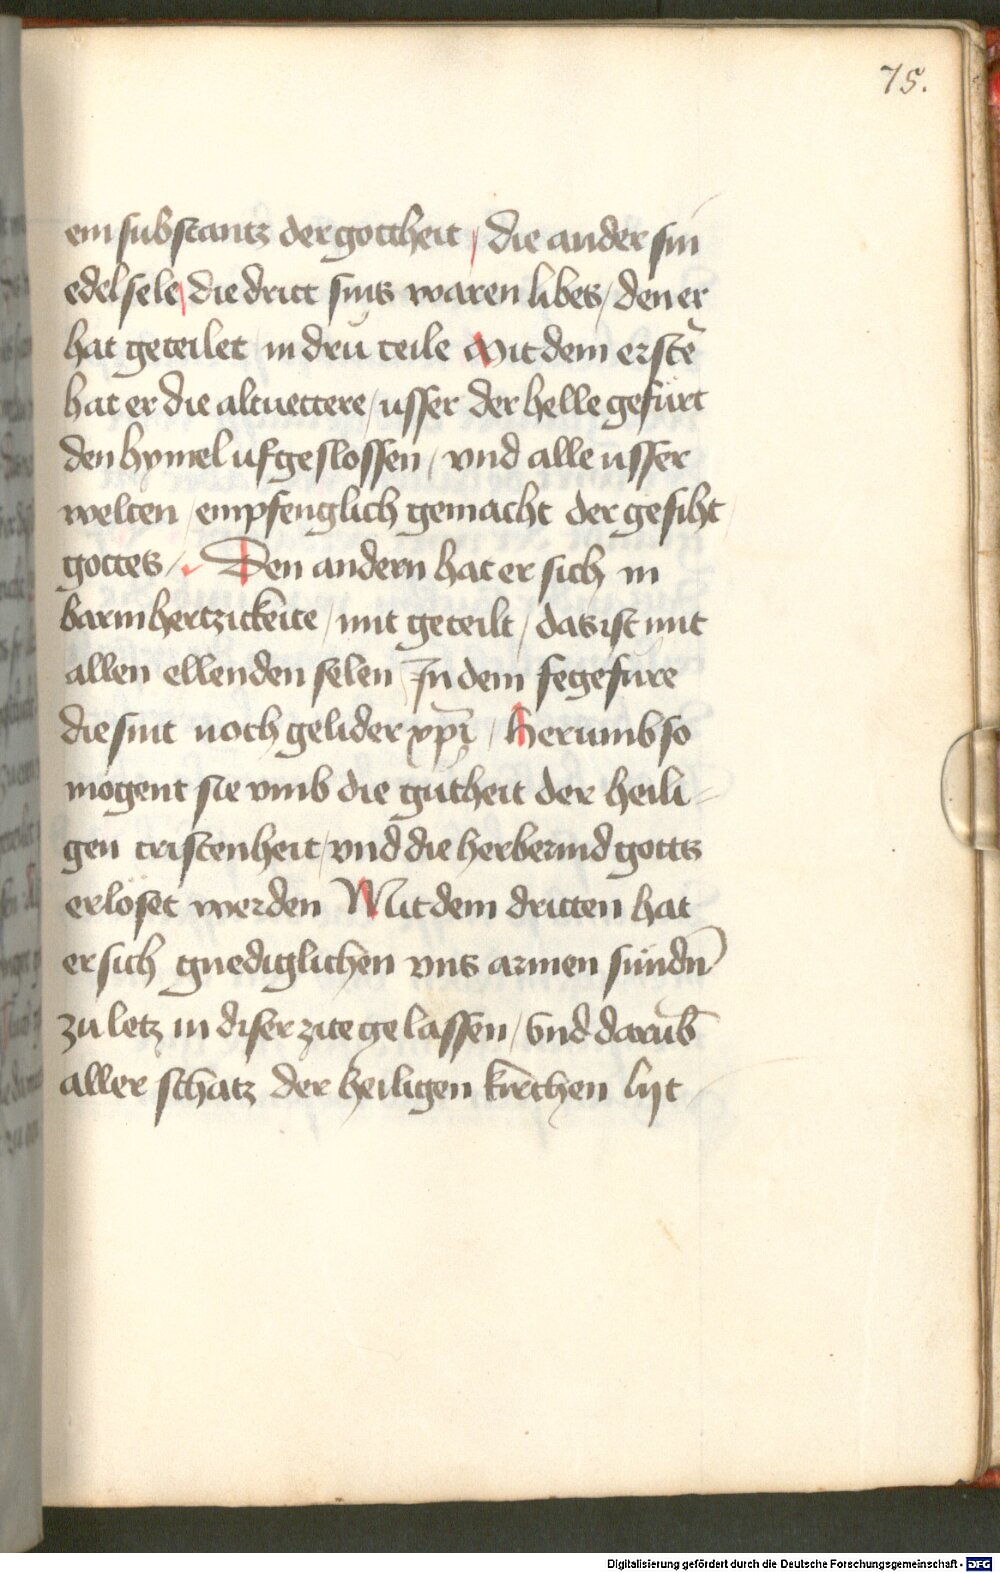 75.
ein substantz der gottheit / die ander sin
edel sele / die dritt sins waren libes / den er
hat geteilet in dru teile Mit dem erstē
hat er die altuettere / usser der helle gefürt
den hymel ufgeslossen / vnd alle usser
welten / empfenglich gemacht der gesiht /
gottes / Den andern hat er sich in
barmhertzickeite / mit geteilt / das ist mit
allen ellenden selen / In dem fegefure
die sint noch gelider xpi / Herumb so
mogent sie vmb die gutheit der heili=
gen cristenheit / vnd die herbermd gotts
erlöset werden Mit dem dritten hat
er sich gnediglichen vns armen sündn̄
zu letz in diser zite gelassen / vnd darūb
aller schatz der heiligen kirchen lijt
Digitalisierung gefördert durch die Deutsche Forschungsgemeinschaft - DFG